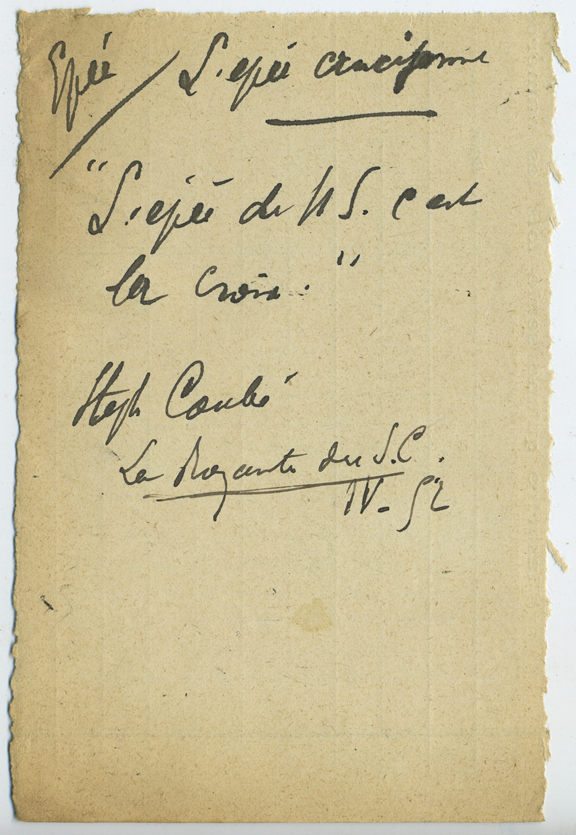 Epée / L'epée cruciforme
"L'epée de N S. c'est
la croix."
Steph Coubé
La Royauté du S.C.
IV - 52